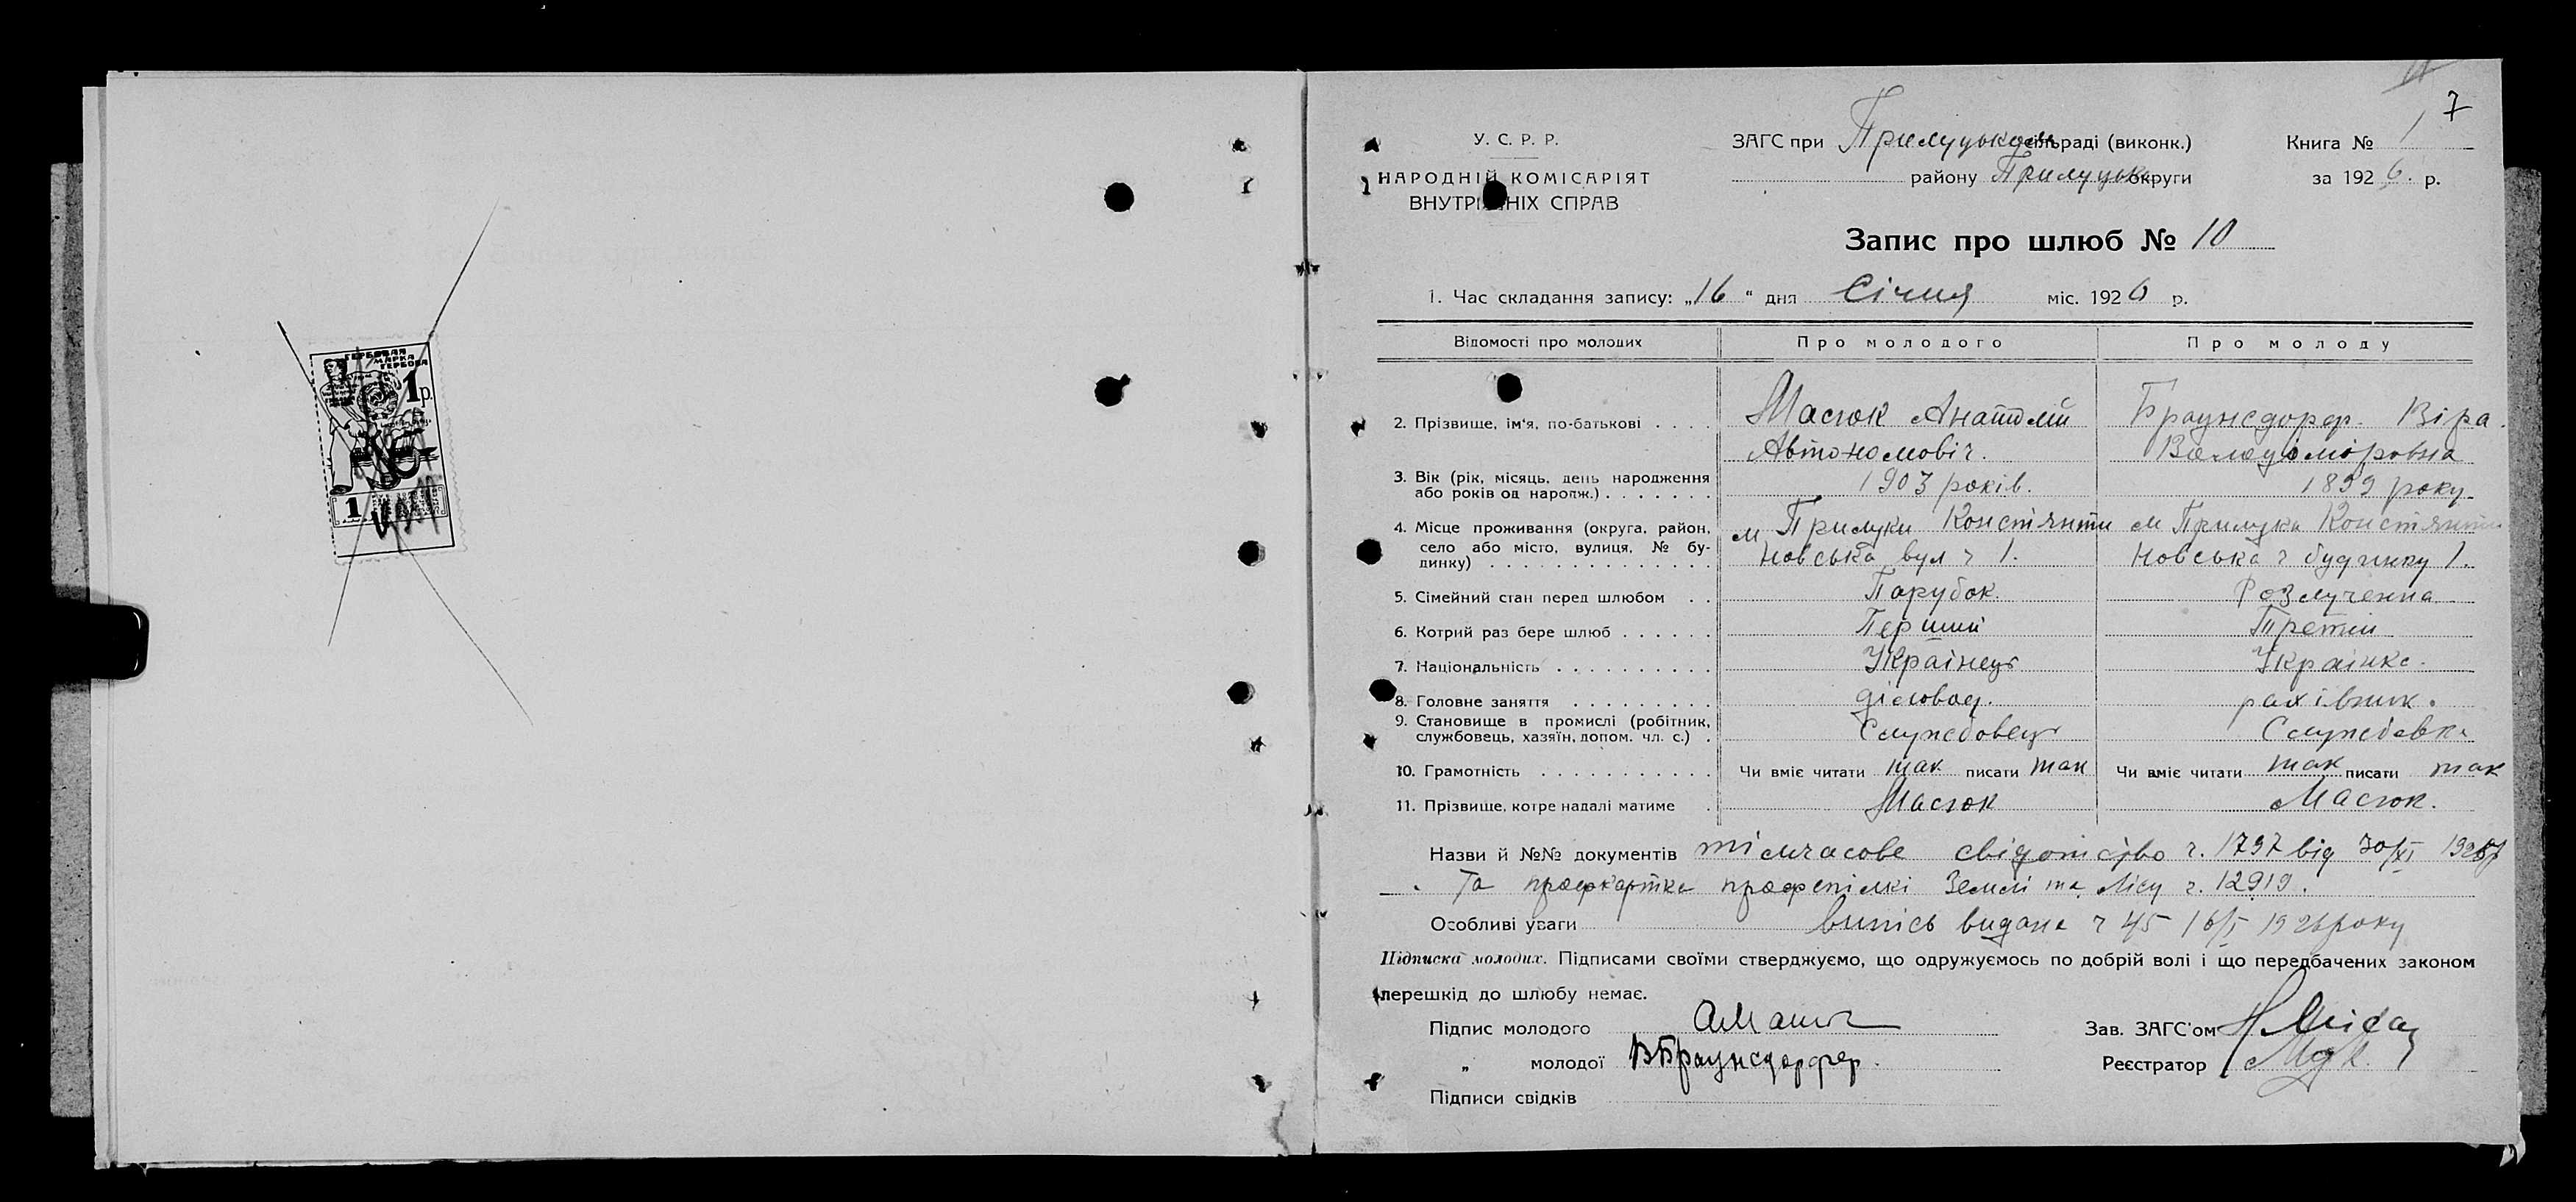 ГЕРБОВАЯ
МАРКА
ГЕРБОВА
1 р.
1
7
У. С. Р. Р.
НАРОДНІЙ КОМІСАРІЯТ
ВНУТРІШНІХ СПРАВ
ЗАГС при Прилуцьком сільраді (виконк.)
району Прилуцько округи
Книга № 1
за 1926. р.
Запис про шлюб № 10
1. Час складання запису: „16“ дня Січня міс. 1926 р.
Відомості про молодих Про молодого Про молоду
2. Прізвище, ім'я, по-батькові . . . . Масюк Анатолій Браунсдорф. Віра.
Автономовіч. Володіміровна
3. Вік (рік, місяць, день народження або років од народж.) . . . . . . . 1903 років. 1899 року.
4. Місце проживання (округа, район, село або місто, вулиця, № будинку) . . . . . . . . . . . . . . м Прилуки Констянти м Прилуки Констянти
Новська вул ч 1. Новська ч будинку 1.
5. Сімейний стан перед шлюбом . . Парубок Розлученна
6. Котрий раз бере шлюб . . . . . . Перший Третий
7. Національність . . . . . . . . . . Українець Українка.
8. Головне заняття . . . . . . . . . діловод. рахівник.
9. Становище в промислі (робітник, службовець, хазяїн, допом. чл. с.) . Служебовець Служебовка
10. Грамотність . . . . . . . . . . . Чи вміє читати так писати так Чи вміє читати так писати так
11. Прізвище, котре надалі матиме . Масюк Масюк.
Назви й №№ документів тімчасове свідотство ч. 1797 від 30/XI 1925р
та профкартка профспілкі Землі та Лісу ч. 12919.
Особливі уваги випісь видана ч 45 16/I 1926 року
Підписка молодих. Підписами своїми стверджуємо, що одружуємось по добрій волі і що передбачених законом
перешкід до шлюбу немає.
Підпис молодого АМасюк Зав. ЗАГС'ом
„ молодої ВБраунсдорфер. Реєстратор
Підписи свідків